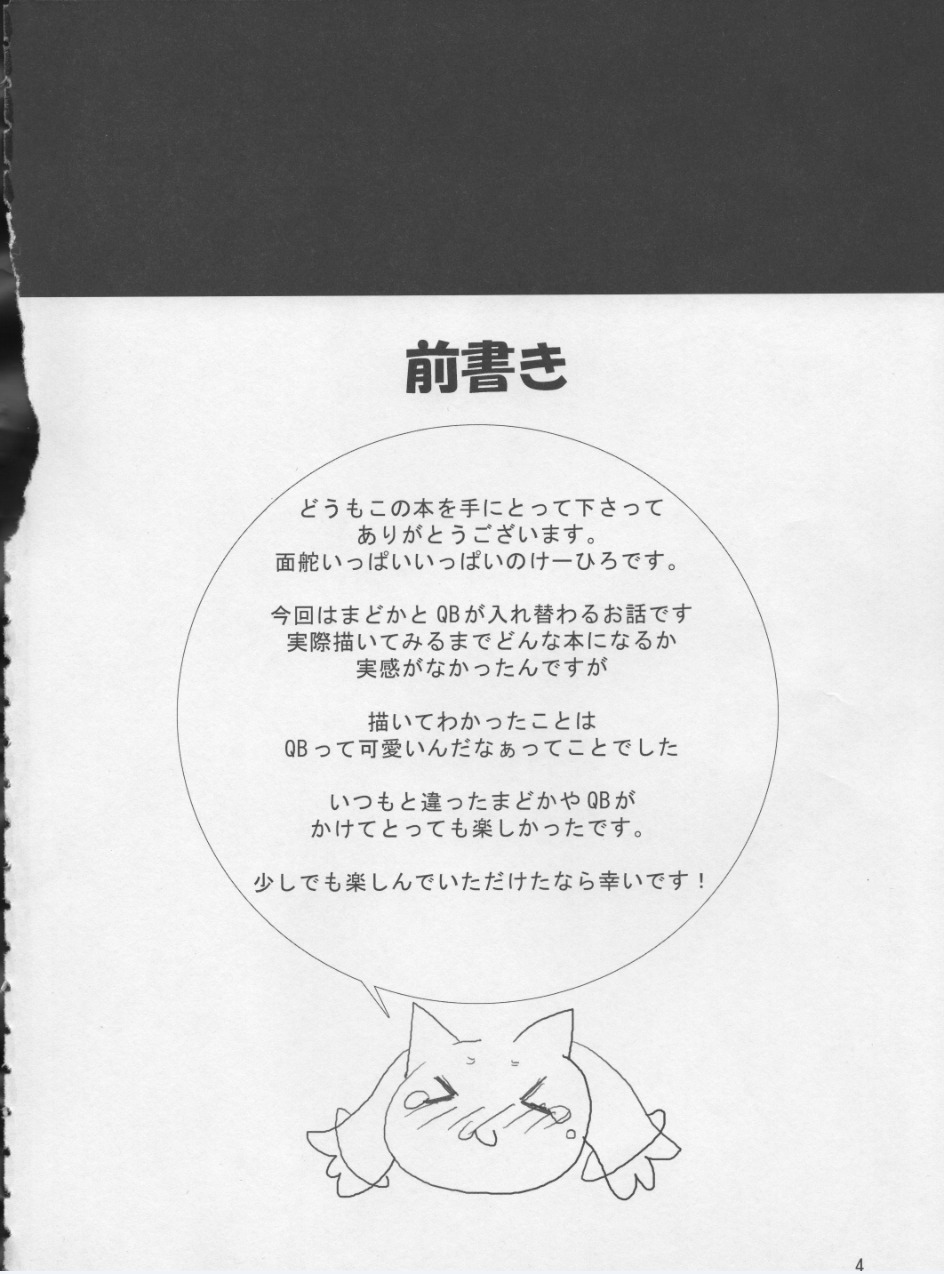 前書き
どうもこの本を手にとって下さって
ありがとうございます。
面舵いっぱいいっぱいのけーひろです。
今回はまどかとQBが入れ替わるお話です
実際描いてみるまでどんな本になるか
実感がなかったんですが
描いてわかったことは
QBって可愛いんだなぁってことでした
いつもと違ったまどかやQBが
かけてとっても楽しかったです。
少しでも楽しんでいただけたなら幸いです！
4